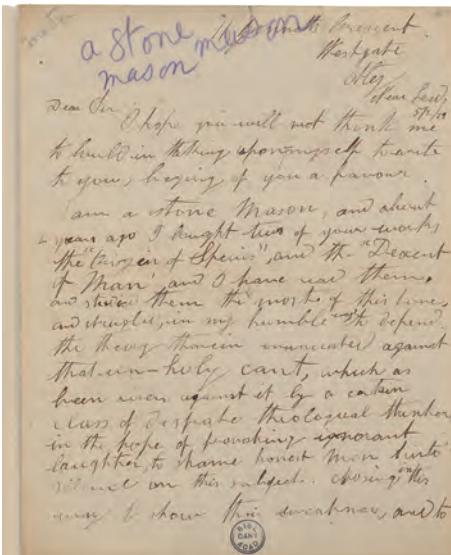 a stone mason
mason
Crescent
Westgate
Otley
Near Leeds
Dear Sir
I hope you will not think me
to bould in taking upon myself to write
to you, beging of you a favour.
am a stone Mason, and about
years ago I bought two of your works
the "Orogein of Species", and the "Descent
of Man" and I have read them,
and them the most of this time,
and in my humble way to defend
the theory therein enunciated against
that un-holy cant, which as
been against it by a certain
class of theological thinkers
in the hope of provoking ignorant
laughter, to shame honest men into
silence on this subject. on this
way to show their weakness, and to